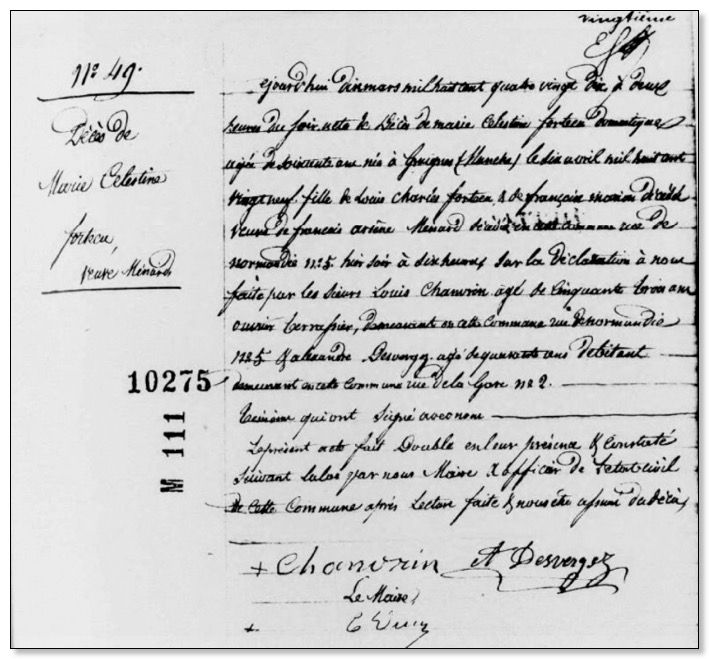 vingtième
N° 49.
Décès de
Marie Celestine
forteu,
veuve Ménard
10275
M 111
ejourd'hui dix mars mil huit cent quatre vingt dix à deux
heures du soir acte de Décès de marie Celestine forteu Domestique
agée de soixante ans née à (Manche) le dix avril mil huit cent
vingt neuf. fille de Louis Charles forteu & de françoise marion Décédés
veuve de françois arsène Ménard décédée en cette Commune rue de
normandie n° 5 hier soir à dix heures, sur la Déclaration à nous
faite par les sieurs Louis Chanvrin agé de Cinquante trois ans
ouvrier terrassier, demeurant en cette commune rue de normandie
n° 5 & alexandre Desvergez agé de quarante ans Debitant
demeurant en cette Commune rue de la Gare n° 2.
temoins qui ont Signé avec nous
Le présent acte fait Double en leur présence & Constaté
Suivant la loi par nous Maire & officier de l'etat civil
de Cette Commune après Lecture faite & nous être assuré du décès,
+ Chanvrin A Desvergez
Le Maire,
+